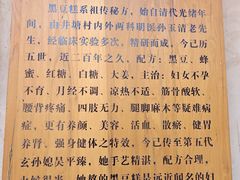 黑豆糕系祖传秘方，始自清代光绪年
间，由井塘村内外两科明医孙玉清老先
生，经临床实验多次，精研而成，今已历
五世，近二百年之久，配方：黑豆、蜂
蜜、红糖、白糖、大姜，主治：妇女不孕
不育、月经不调、凉热不适、筋骨酸软、
腰背疼痛、四肢无力、腿脚麻木等疑难病
症，更有养颜、美容、活血、散瘀、健胃
养肾，强身健体之特效，今已传至第五代
玄孙媳吴平臻，她手艺精湛，配方合理，
她熬的黑豆糕是远近闻名的妇